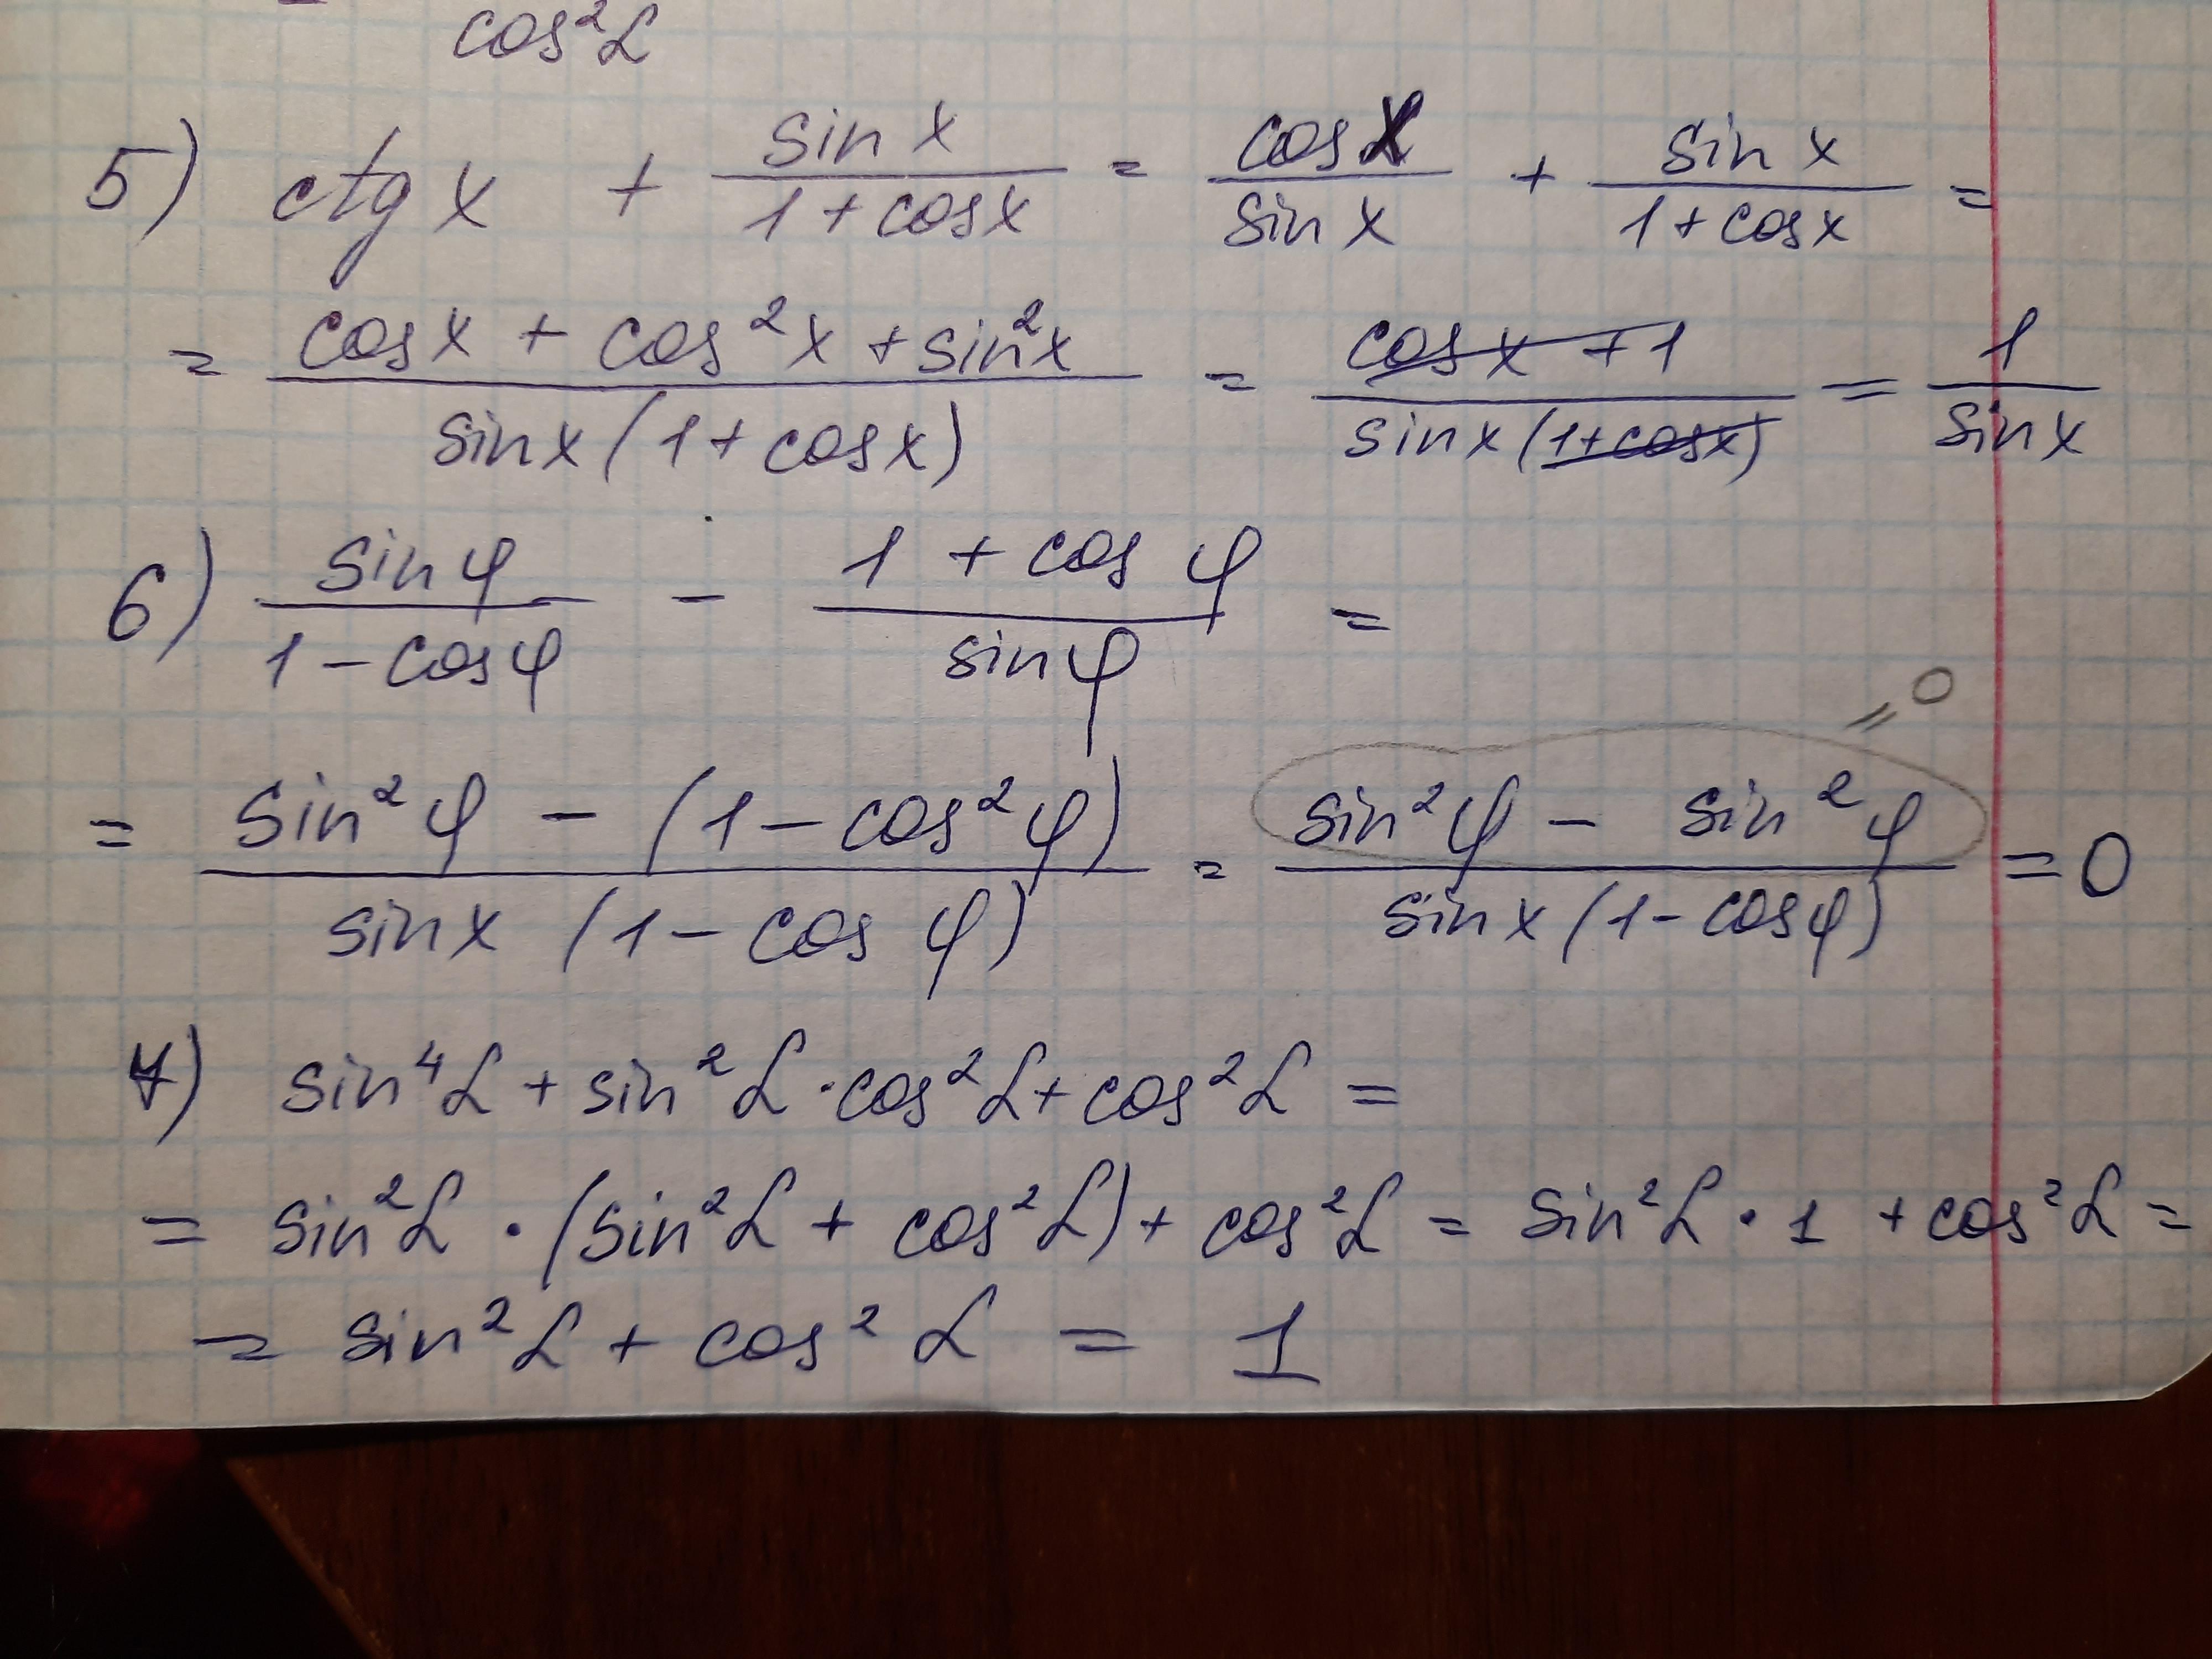 cos²α
5) ctg x + sin x / 1 + cos x = cos x / sin x + sin x / 1 + cos x =
= cos x + cos² x + sin² x / sin x (1 + cos x) = cos x + 1 / sin x (1 + cos x) = 1 / sin x
6) sin φ / 1 - cos φ - 1 + cos φ / sin φ =
= 0
= sin² φ - (1 - cos² φ) / sin x (1 - cos φ) = sin² φ - sin² φ / sin x (1 - cos φ) = 0
7) sin⁴ α + sin² α · cos² α + cos² α =
= sin² α · (sin² α + cos² α) + cos² α = sin² α · 1 + cos² α =
= sin² α + cos² α = 1